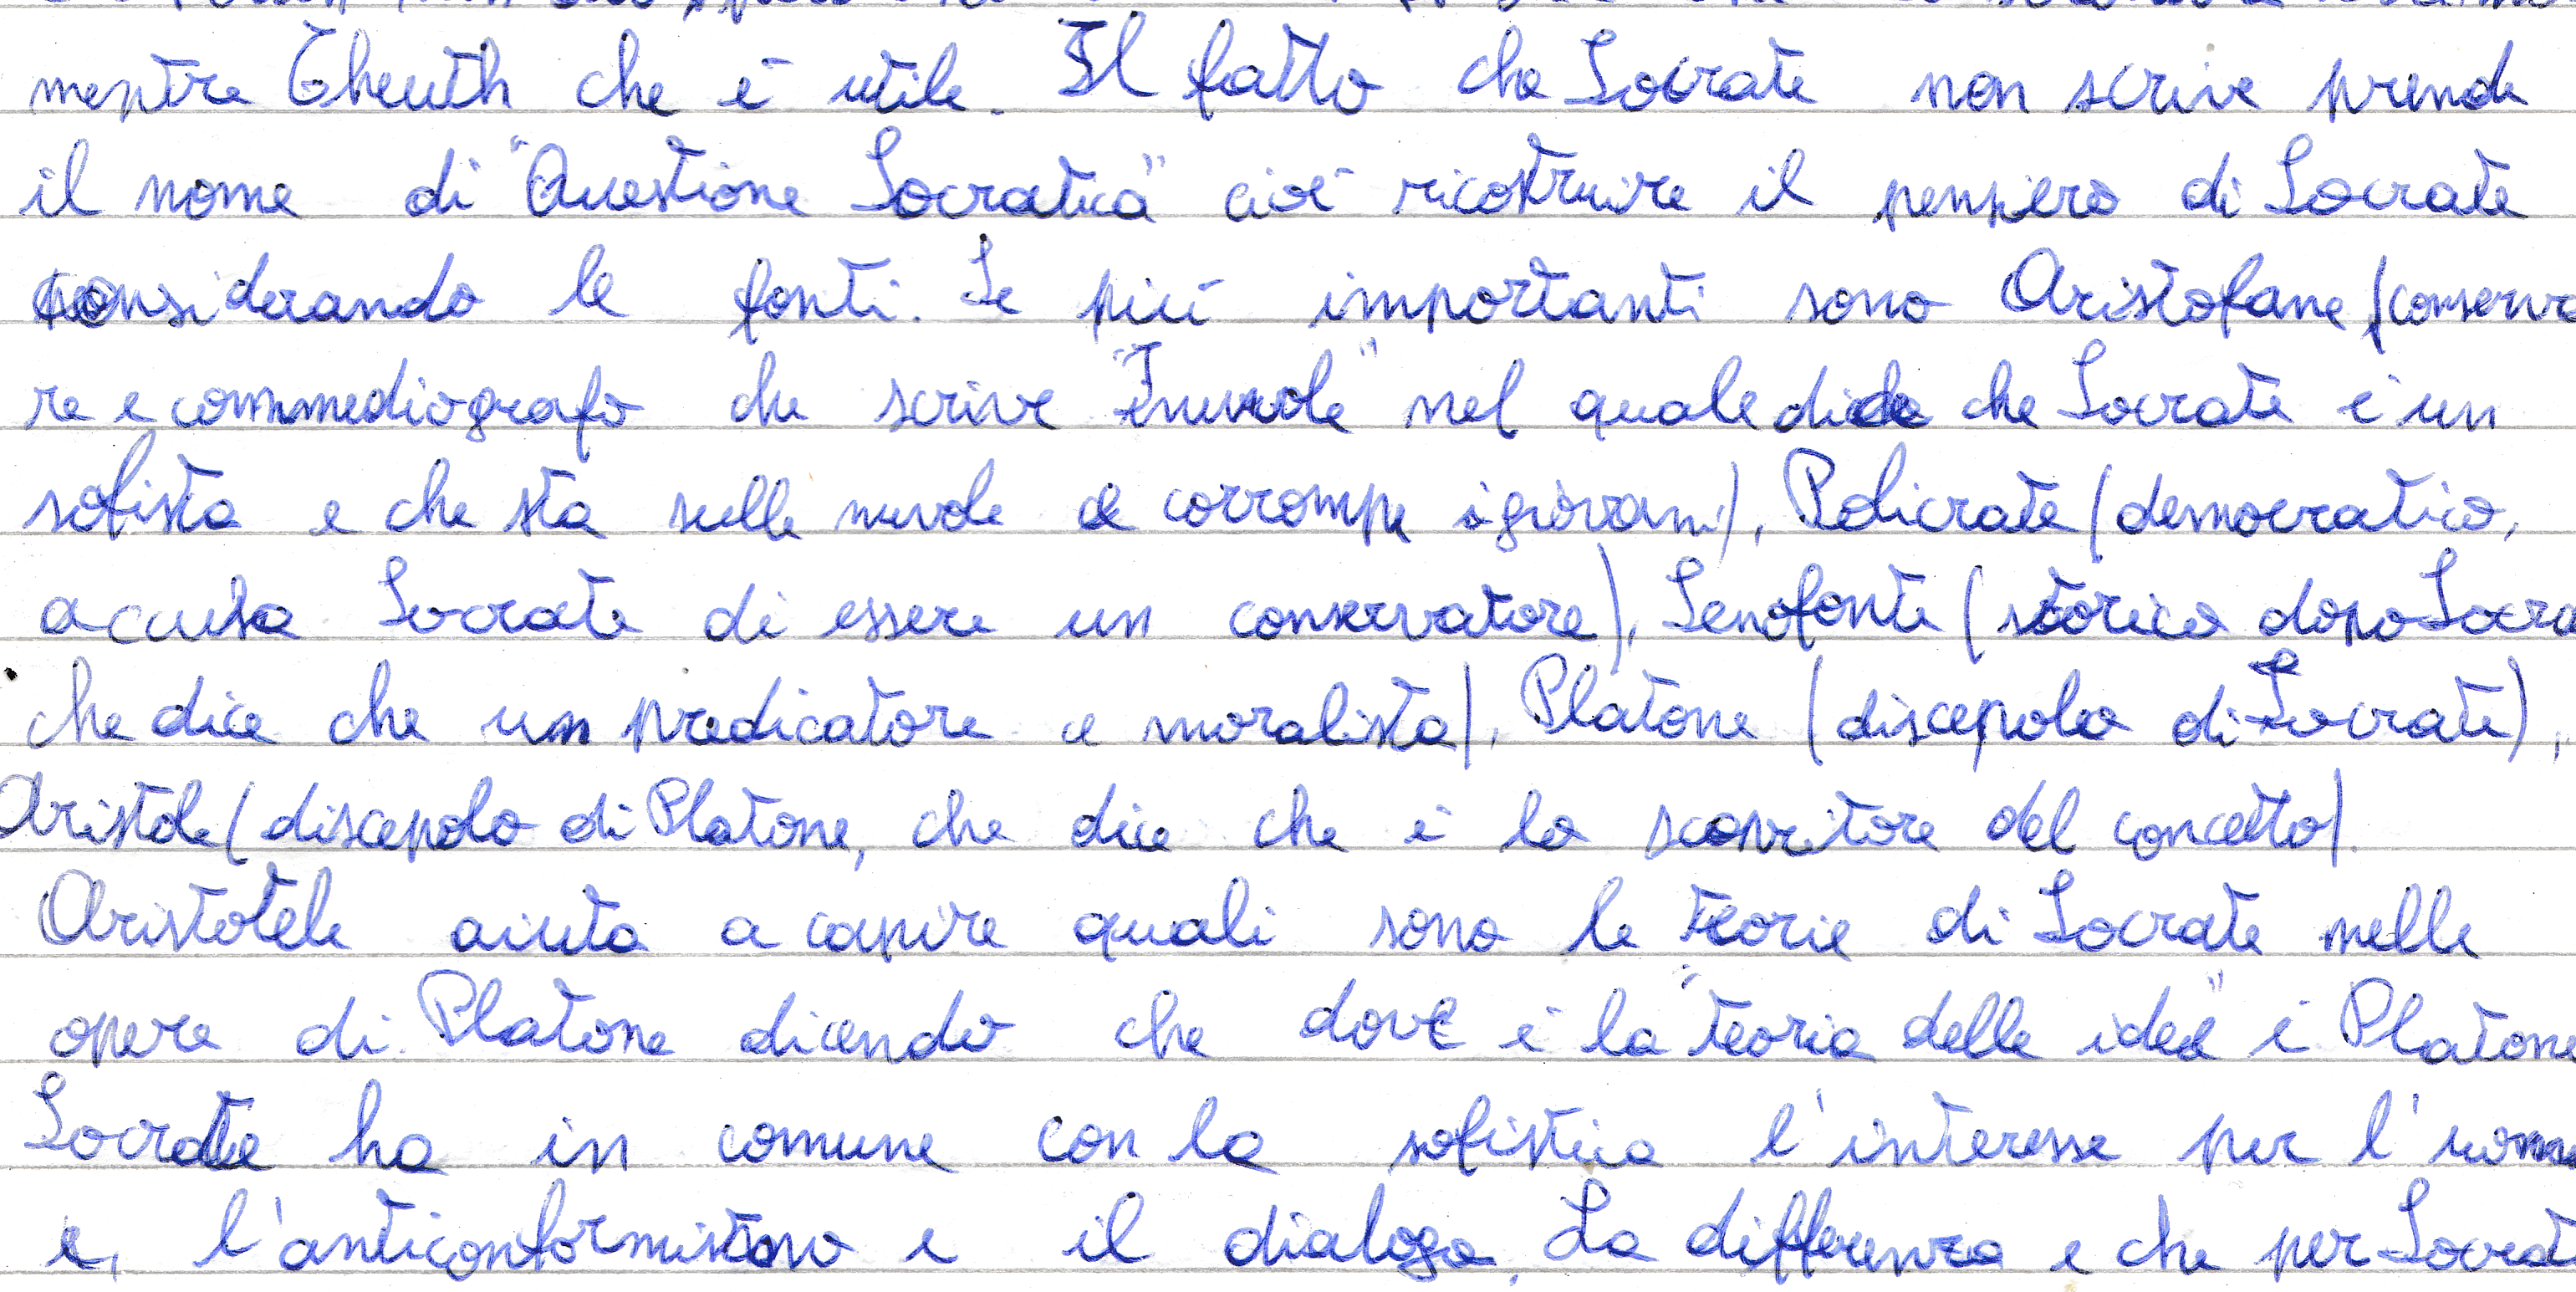 mentre Theuth che è utile. Il fatto che Socrate non scrive prende
il nome di "Questione Socratica" cioè ricostruire il pensiero di Socrate
considerando le fonti. Le più importanti sono Aristofane (conserva
re e commediografo che scrive "Le nuvole" nel quale dice che Socrate è un
sofista e che sta sulle nuvole e corrompe i giovani), Policrate (democratico,
accusa Socrate di essere un conservatore), Senofonte (storico dopo Socra
che dice che un predicatore e moralista), Platone (discepolo di Socrate),
Aristole (discepolo di Platone, che dice che è lo scopritore del concetto).
Aristotele aiuta a capire quali sono le teorie di Socrate nelle
opere di Platone dicendo che dove è la "teoria delle idee" è Platone
Socrate ha in comune con la sofistica l'interesse per l'uomo
e, l'anticonformismo e il dialogo. La differenza e che per Socrat